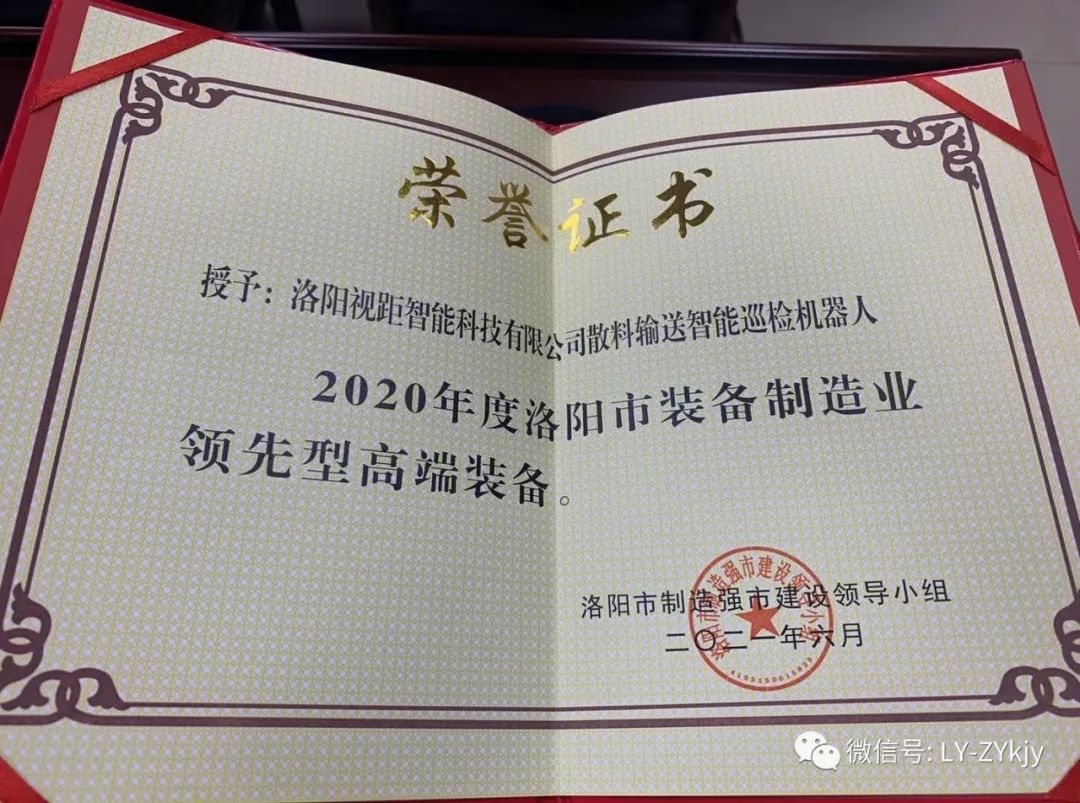 荣誉证书
授予：洛阳视距智能科技有限公司散料输送智能巡检机器人
2020年度洛阳市装备制造业
领先型高端装备。
洛阳市制造强市建设领导小组
二〇二一年六月
洛阳市制造强市建设领导小组
微信号: LY-ZYkjy